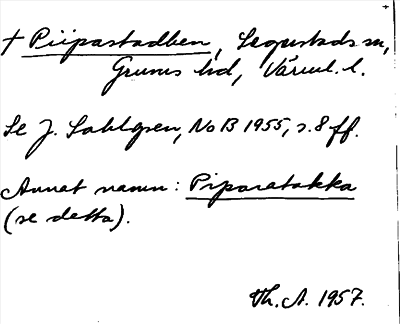 † Piipastadben, Segerstads sn,
Grums hd, Värml. l.
Se J. Sahlgren, NoB 1955, s. 8 ff.
Annat namn: Piparatakka
(se detta).
Th. A. 1957.